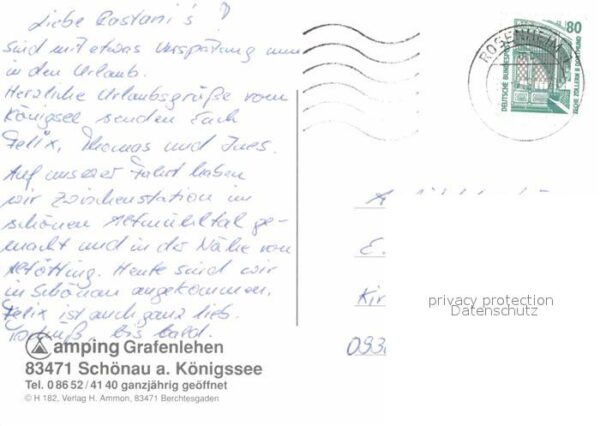 Liebe Castani's!
sind mit etwas Verspätung nun
in den Urlaub.
Herzliche Urlaubsgrüße vom
Königsee senden Euch
Felix, Thomas und Ines.
Auf unserer Fahrt haben
wir Zwischenstation im
schönen Altmühltal ge-
macht und in der Nähe von
Altötting. Heute sind wir
in Schönau angekommen.
Felix ist auch ganz lieb.
bis bald.
Camping Grafenlehen
83471 Schönau a. Königssee
Tel. 0 86 52 / 41 40 ganzjährig geöffnet
© H 182, Verlag H. Ammon, 83471 Berchtesgaden
ROSENHEIM
80
DEUTSCHE BUNDESPOST
ZECHE ZOLLERN II DORTMUND
E.
Kir
privacy protection
Datenschutz